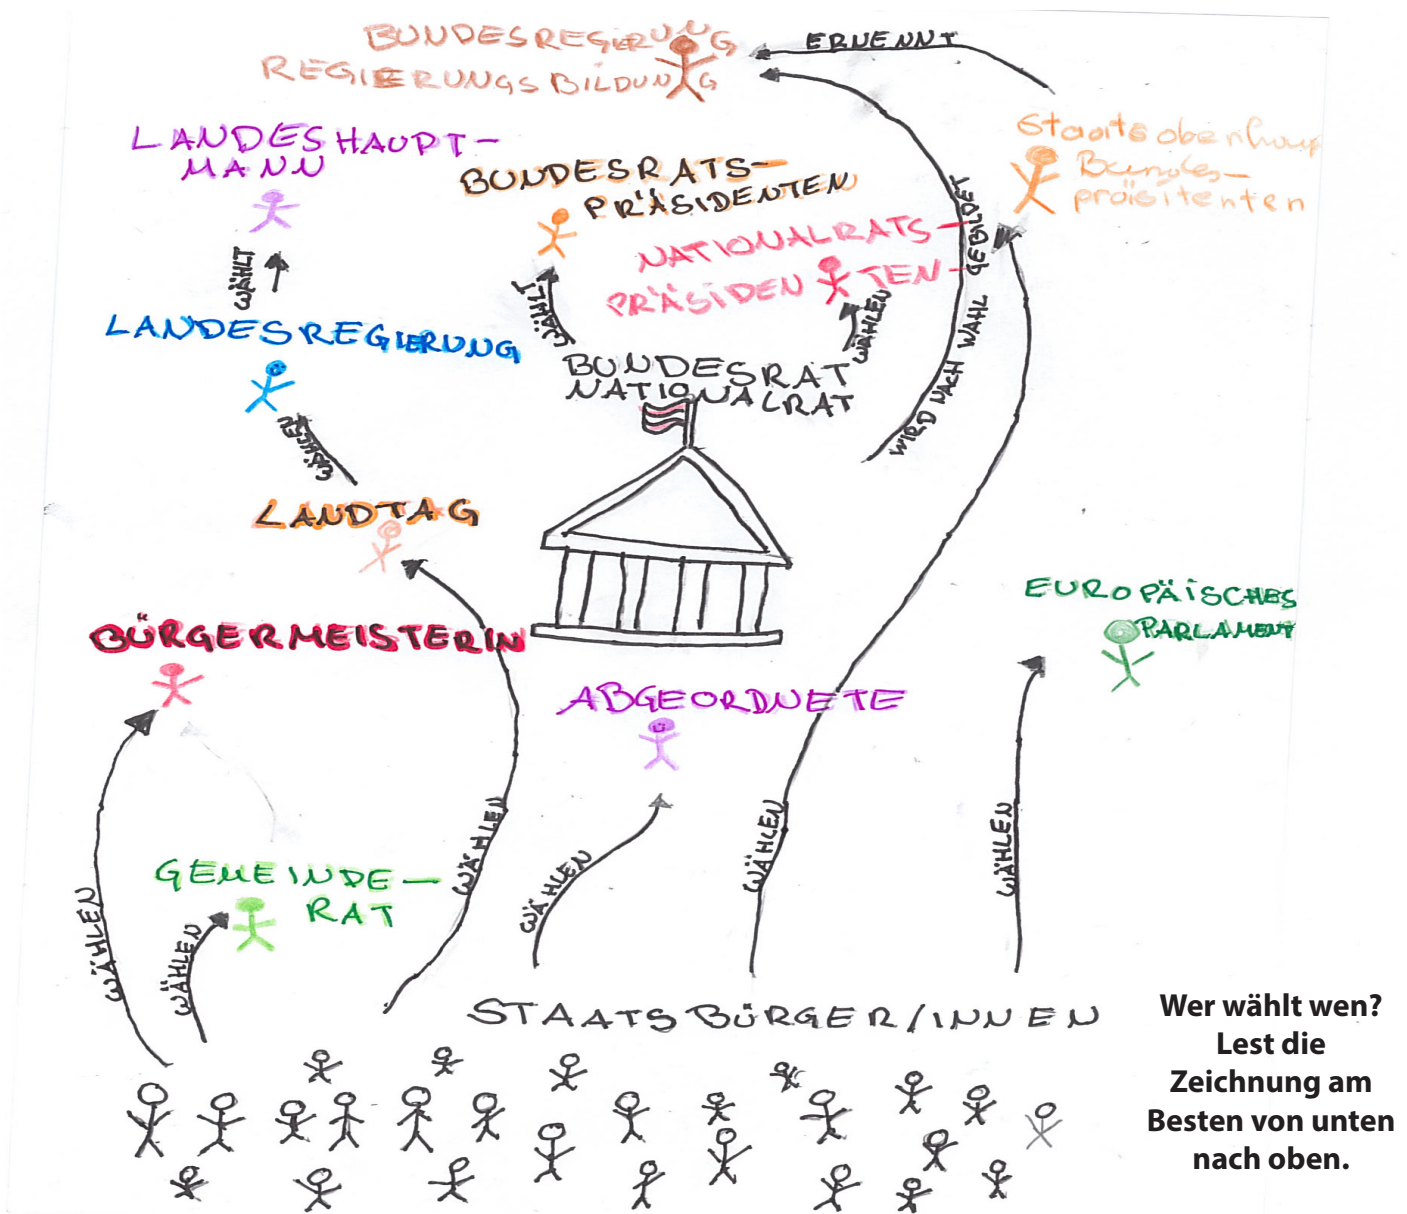 BUNDESREGIERUNG
REGIERUNGSBILDUNG
ERNENNT
LANDESHAUPT-
MANN
BUNDESRATS-
PRÄSIDENTEN
Staatsoberhaupt
Bundes-
präisitenten
NATIONALRATS
PRÄSIDENTEN
WÄHLT
WÄHLT
WÄHLEN
WIRD NACH WAHL GEBILDET
LANDESREGIERUNG
BUNDESRAT
NATIONALRAT
WÄHLEN
LANDTAG
EUROPÄISCHES
PARLAMENT
BÜRGERMEISTERIN
ABGEORDNETE
GEMEINDE-
RAT
WÄHLEN
WÄHLEN
WÄHLEN
WÄHLEN
WÄHLEN
WÄHLEN
STAATSBÜRGER/INNEN
Wer wählt wen?
Lest die
Zeichnung am
Besten von unten
nach oben.